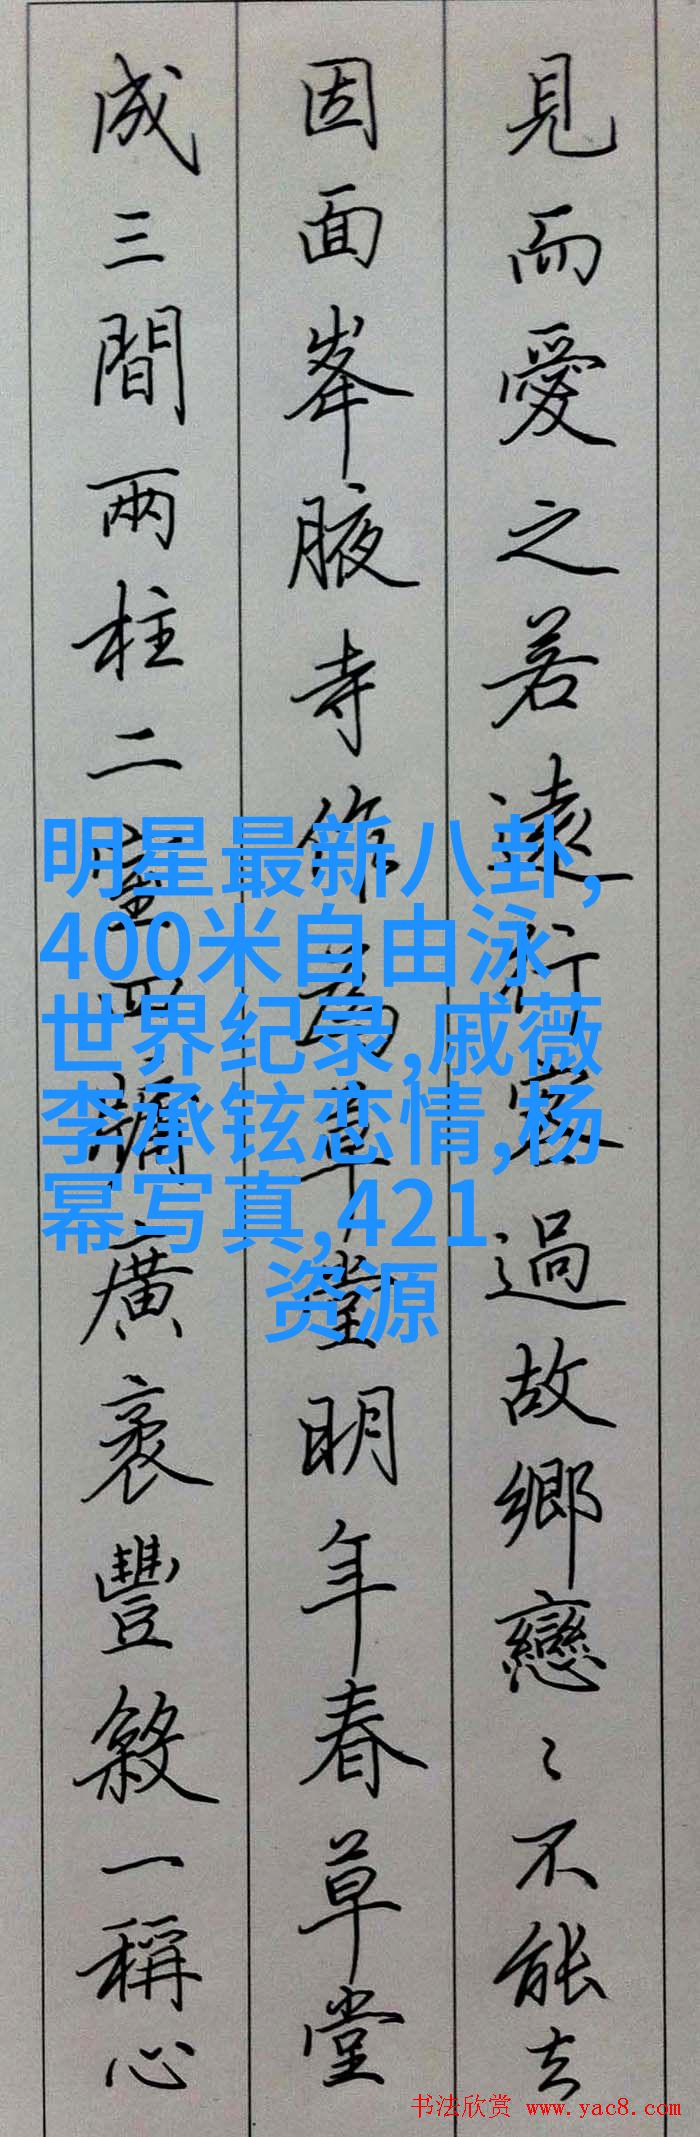 見而愛之若遠行客過故鄉戀〻不能去
因面峯腋寺作為草堂明年春草堂
成三間兩柱二室四牖廣袤豐殺一稱心
明星最新八卦,
400米自由泳
世界纪录,戚薇
李承铉恋情,杨
幂写真,421
资源
书法欣赏 www.yac8.com